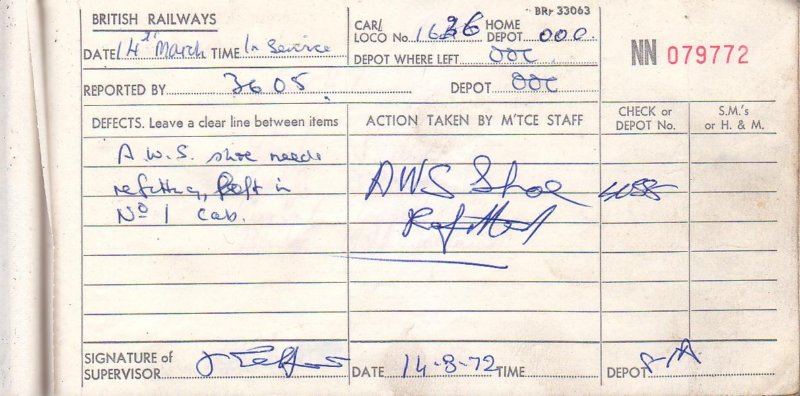 BRITISH RAILWAYS
DATE 14th March TIME In Service
CAR/ LOCO No. 1636 HOME DEPOT 000
BRF 33063
DEPOT WHERE LEFT OOC
NN 079772
REPORTED BY 3605 DEPOT OOC
DEFECTS. Leave a clear line between items
ACTION TAKEN BY M'TCE STAFF
CHECK or DEPOT No.
S.M.'s or H. & M.
A.W.S. shoe needs
refitting, left in
No 1 cab.
AWS Shoe
Refitted
SIGNATURE of SUPERVISOR
DATE 14-3-72 TIME
DEPOT